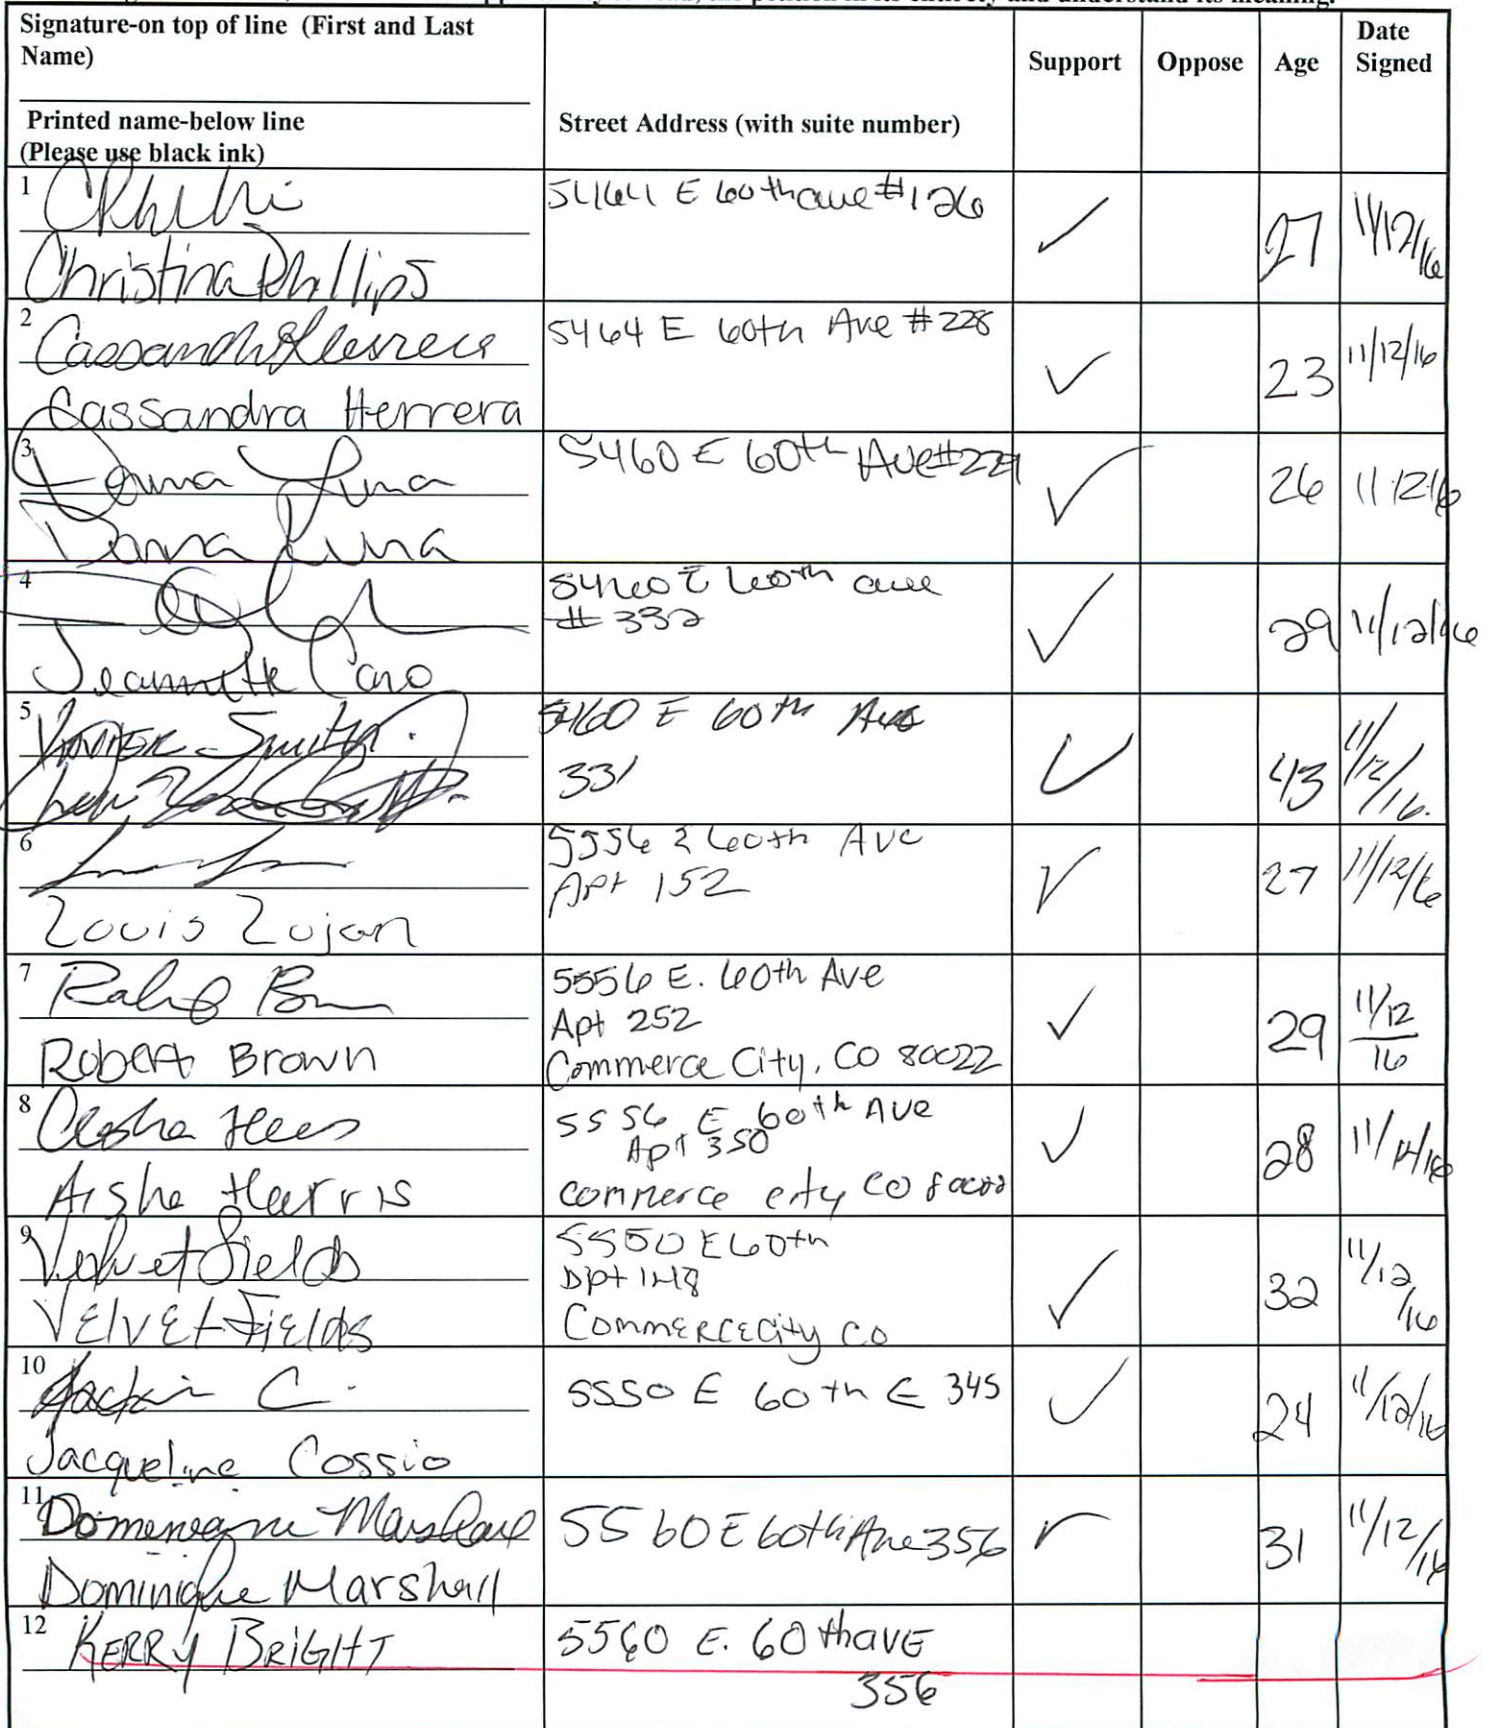 the petition in its entirety and understand its meaning.
Signature-on top of line (First and Last
Name)
Printed name-below line
(Please use black ink)
Street Address (with suite number)
Support
Oppose
Age
Date
Signed
1
Christina Phillips
5464 E 60th ave #126
27
11/12/16
2
Cassandra Herrera
Cassandra Herrera
5464 E 60th Ave #228
23
11/12/16
3
Donna Luna
Donna Luna
5460 E 60th Ave #229
26
11 12 16
4
Jeannette Caro
5460 E 60th ave
# 332
29
11/12/16
5
Smith
5460 E 60th Ave
331
43
11/12/16.
6
Louis Lujan
5556 E 60th Ave
Apt 152
27
11/12/16
7
Robert Brown
5556 E. 60th Ave
Apt 252
Commerce City, CO 80022
29
11/12
16
8
Aisha Harris
5556 E 60th Ave
Apt 350
commerce city CO 80022
28
11/12/16
9
Velvet Fields
VELVET FIELDS
5550 E 60th
Apt 148
Commerce City CO
32
11/12/16
10
Jackie C.
Jacqueline Cossio
5550 E 60th E 345
24
11/12/16
11
Dominique Marshall
Dominique Marshall
5560 E 60th Ave 356
31
11/12/16
12
KERRY BRIGHT
5560 E. 60th AVE
356